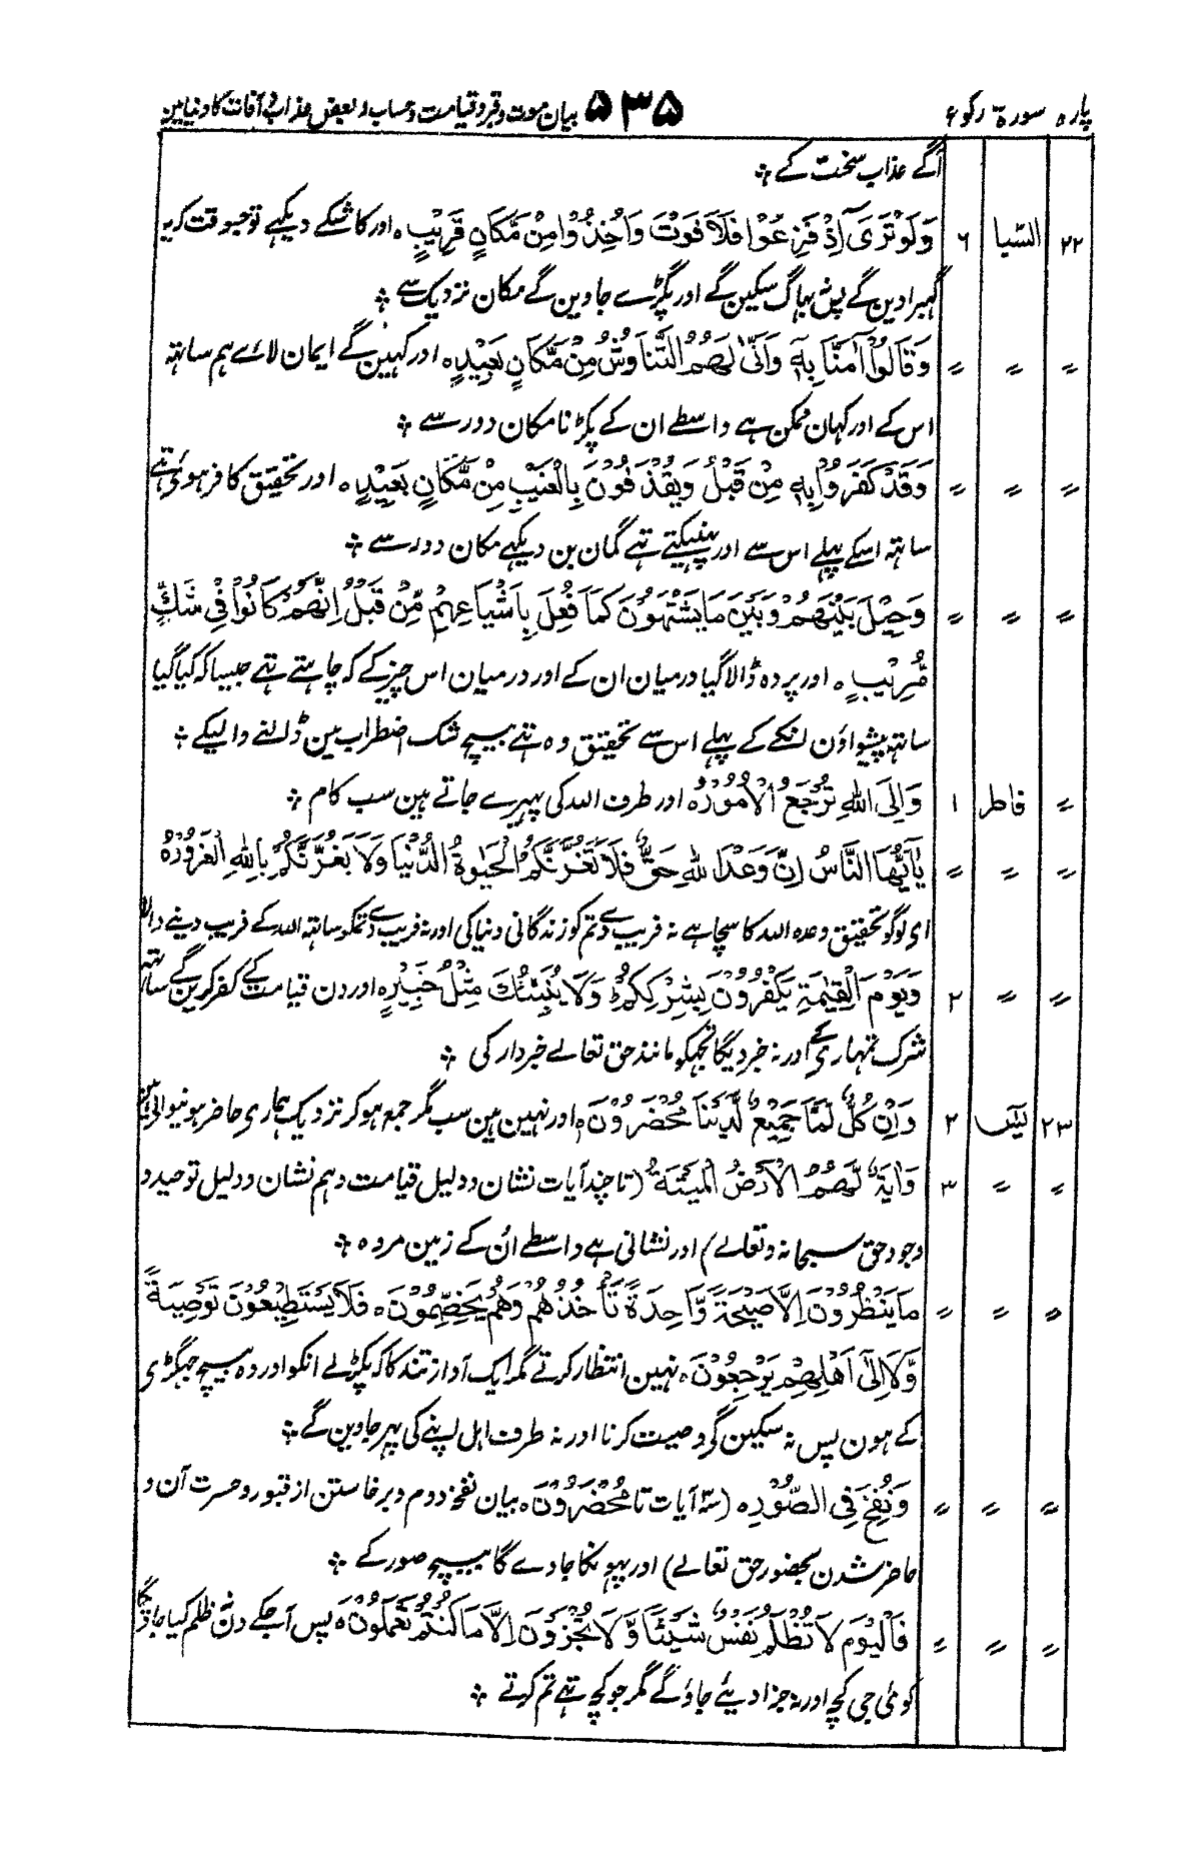 پارہ سورۃ رکوع ۵۳۵ بیان موت و قبر و قیامت و حساب و بعض عذاب و آفات کا دنیا میں
آگے عذاب سخت کے ؞
۲۲ السّبا ۶ وَلَوْ تَرٰٓى اِذْ فَزِعُوْا فَلَا فَوْتَ وَاُخِذُوْا مِنْ مَّكَانٍ قَرِيْبٍ ہ اور کاشکے دیکھے تو جسوقت کہ
گھبرادین گے پس نہ بھاگ سکین گے اور پکڑے جاوین گے مکان نزدیک سے ؞
〃 〃 〃 وَقَالُوْٓا اٰمَنَّا بِهٖ وَاَنّٰى لَهُمُ التَّنَاوُشُ مِنْ مَّكَانٍ بَعِيْدٍ ہ اور کہین گے ایمان لائے ہم ساتھ
اس کے اور کہان ممکن ہے واسطے ان کے پکڑنا مکان دور سے ؞
〃 〃 〃 وَقَدْ كَفَرُوْا بِهٖ مِنْ قَبْلُ وَيَقْذِفُوْنَ بِالْغَيْبِ مِنْ مَّكَانٍ بَعِيْدٍ ہ اور تحقیق کافر ہوئے تھے
ساتھ اسکے پہلے اس سے اور پھینکتے تھے گمان بن دیکھے مکان دور سے ؞
〃 〃 〃 وَحِيْلَ بَيْنَهُمْ وَبَيْنَ مَا يَشْتَهُوْنَ كَمَا فُعِلَ بِاَشْيَاعِهِمْ مِّنْ قَبْلُ اِنَّهُمْ كَانُوْا فِيْ شَكٍّ
مُّرِيْبٍ ہ اور پردہ ڈالا گیا درمیان ان کے اور درمیان اس چیز کے کہ چاہتے تھے جیسا کہ کیا گیا
ساتھ پیشواؤن انکے کے پہلے اس سے تحقیق وہ تھے بیچ شک اضطراب مین ڈالنے والیکے ؞
〃 فاطر ۱ وَاِلَى اللّٰهِ تُرْجَعُ الْاُمُوْرُ ہ اور طرف اللہ کی پھیرے جاتے ہین سب کام ؞
〃 〃 〃 يٰٓاَيُّهَا النَّاسُ اِنَّ وَعْدَ اللّٰهِ حَقٌّ فَلَا تَغُرَّنَّكُمُ الْحَيٰوةُ الدُّنْيَا وَلَا يَغُرَّنَّكُمْ بِاللّٰهِ الْغَرُوْرُ ہ
ای لوگو تحقیق وعدہ اللہ کا سچا ہے نہ فریب دے تم کو زندگانی دنیا کی اور نہ فریب دے تمکو ساتھ اللہ کے فریب دینے والا
〃 〃 ۲ وَيَوْمَ الْقِيٰمَةِ يَكْفُرُوْنَ بِشِرْكِكُمْ وَلَا يُنَبِّئُكَ مِثْلُ خَبِيْرٍ ہ اور دن قیامت کے کفر کرین گے ساتھ
شرک تمہاری کے اور نہ خبر دیگا تجھکو مانند حق تعالے خبردار کی ؞
۲۳ یٰسٓ ۲ وَاِنْ كُلٌّ لَّمَّا جَمِيْعٌ لَّدَيْنَا مُحْضَرُوْنَ ہ اور نہین ہین سب مگر جمع ہو کر نزدیک ہماری حاضر ہونیوالی ہین
〃 〃 ۳ وَاٰيَةٌ لَّهُمُ الْاَرْضُ الْمَيْتَةُ (تا چند آیات نشان و دلیل قیامت و ہم نشان و دلیل توحید و
وجود حق سبحانہ و تعالے) اور نشانی ہے واسطے اُن کے زمین مردہ ؞
〃 〃 〃 مَا يَنْظُرُوْنَ اِلَّا صَيْحَةً وَّاحِدَةً تَاْخُذُهُمْ وَهُمْ يَخِصِّمُوْنَ ہ فَلَا يَسْتَطِيْعُوْنَ تَوْصِيَةً
وَّلَآ اِلٰٓى اَهْلِهِمْ يَرْجِعُوْنَ ہ نہین انتظار کرتے مگر ایک آواز تند کا کہ پکڑلے انکو اور وہ بیچ جھگڑی
کے ہون پس نہ سکین گی وصیت کرنا اور نہ طرف اہل اپنے کی پھر جاوین گے ؞
〃 〃 〃 وَنُفِخَ فِي الصُّوْرِ ہ (سہ آیات تا مُحْضَرُوْنَ ہ بیان نفخہ دوم و برخاستن از قبور و حسرت آن و
حاضر شدن بحضور حق تعالے) اور پھونکا جاوے گا بیچ صور کے ؞
〃 〃 〃 فَالْيَوْمَ لَا تُظْلَمُ نَفْسٌ شَيْئًا وَّلَا تُجْزَوْنَ اِلَّا مَا كُنْتُمْ تَعْمَلُوْنَ ہ پس آجکے دن نہ ظلم کیا جاویگا
کوئی جی کچھ اور نہ جزا دیئے جاؤ گے مگر جو کچھ تھے تم کرتے ؞